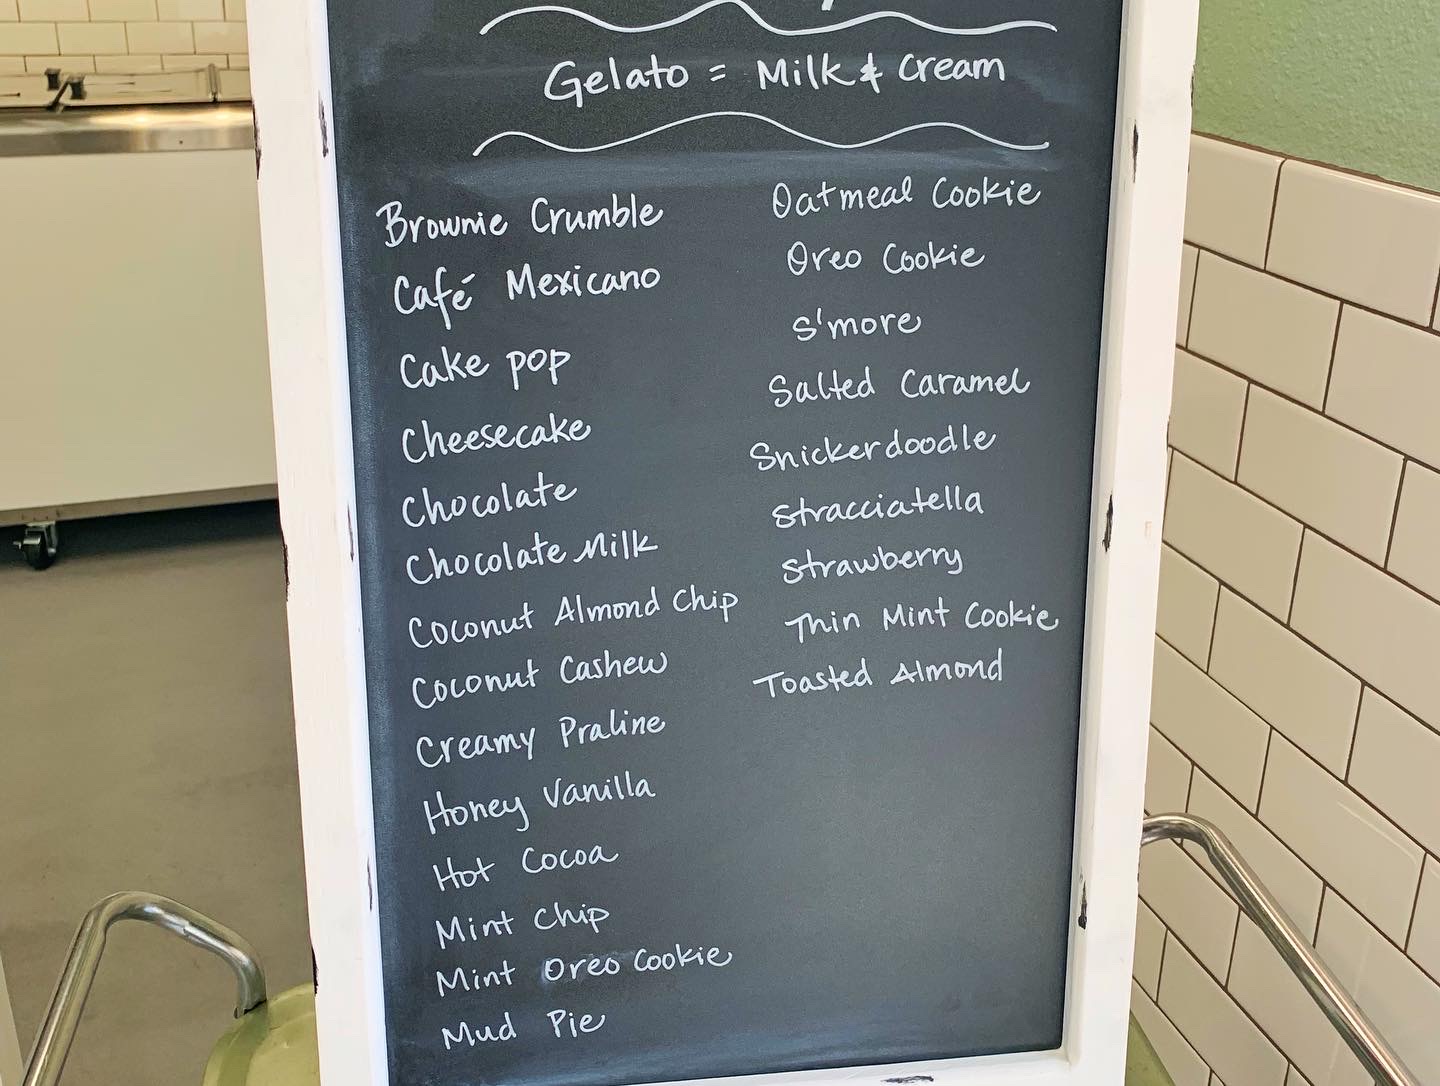 Gelato = Milk & Cream
Brownie Crumble
Café Mexicano
Cake pop
Cheesecake
Chocolate
Chocolate Milk
Coconut Almond Chip
Coconut Cashew
Creamy Praline
Honey Vanilla
Hot Cocoa
Mint Chip
Mint Oreo Cookie
Mud Pie
Oatmeal Cookie
Oreo Cookie
S'more
Salted Caramel
Snickerdoodle
Stracciatella
Strawberry
Thin Mint Cookie
Toasted Almond